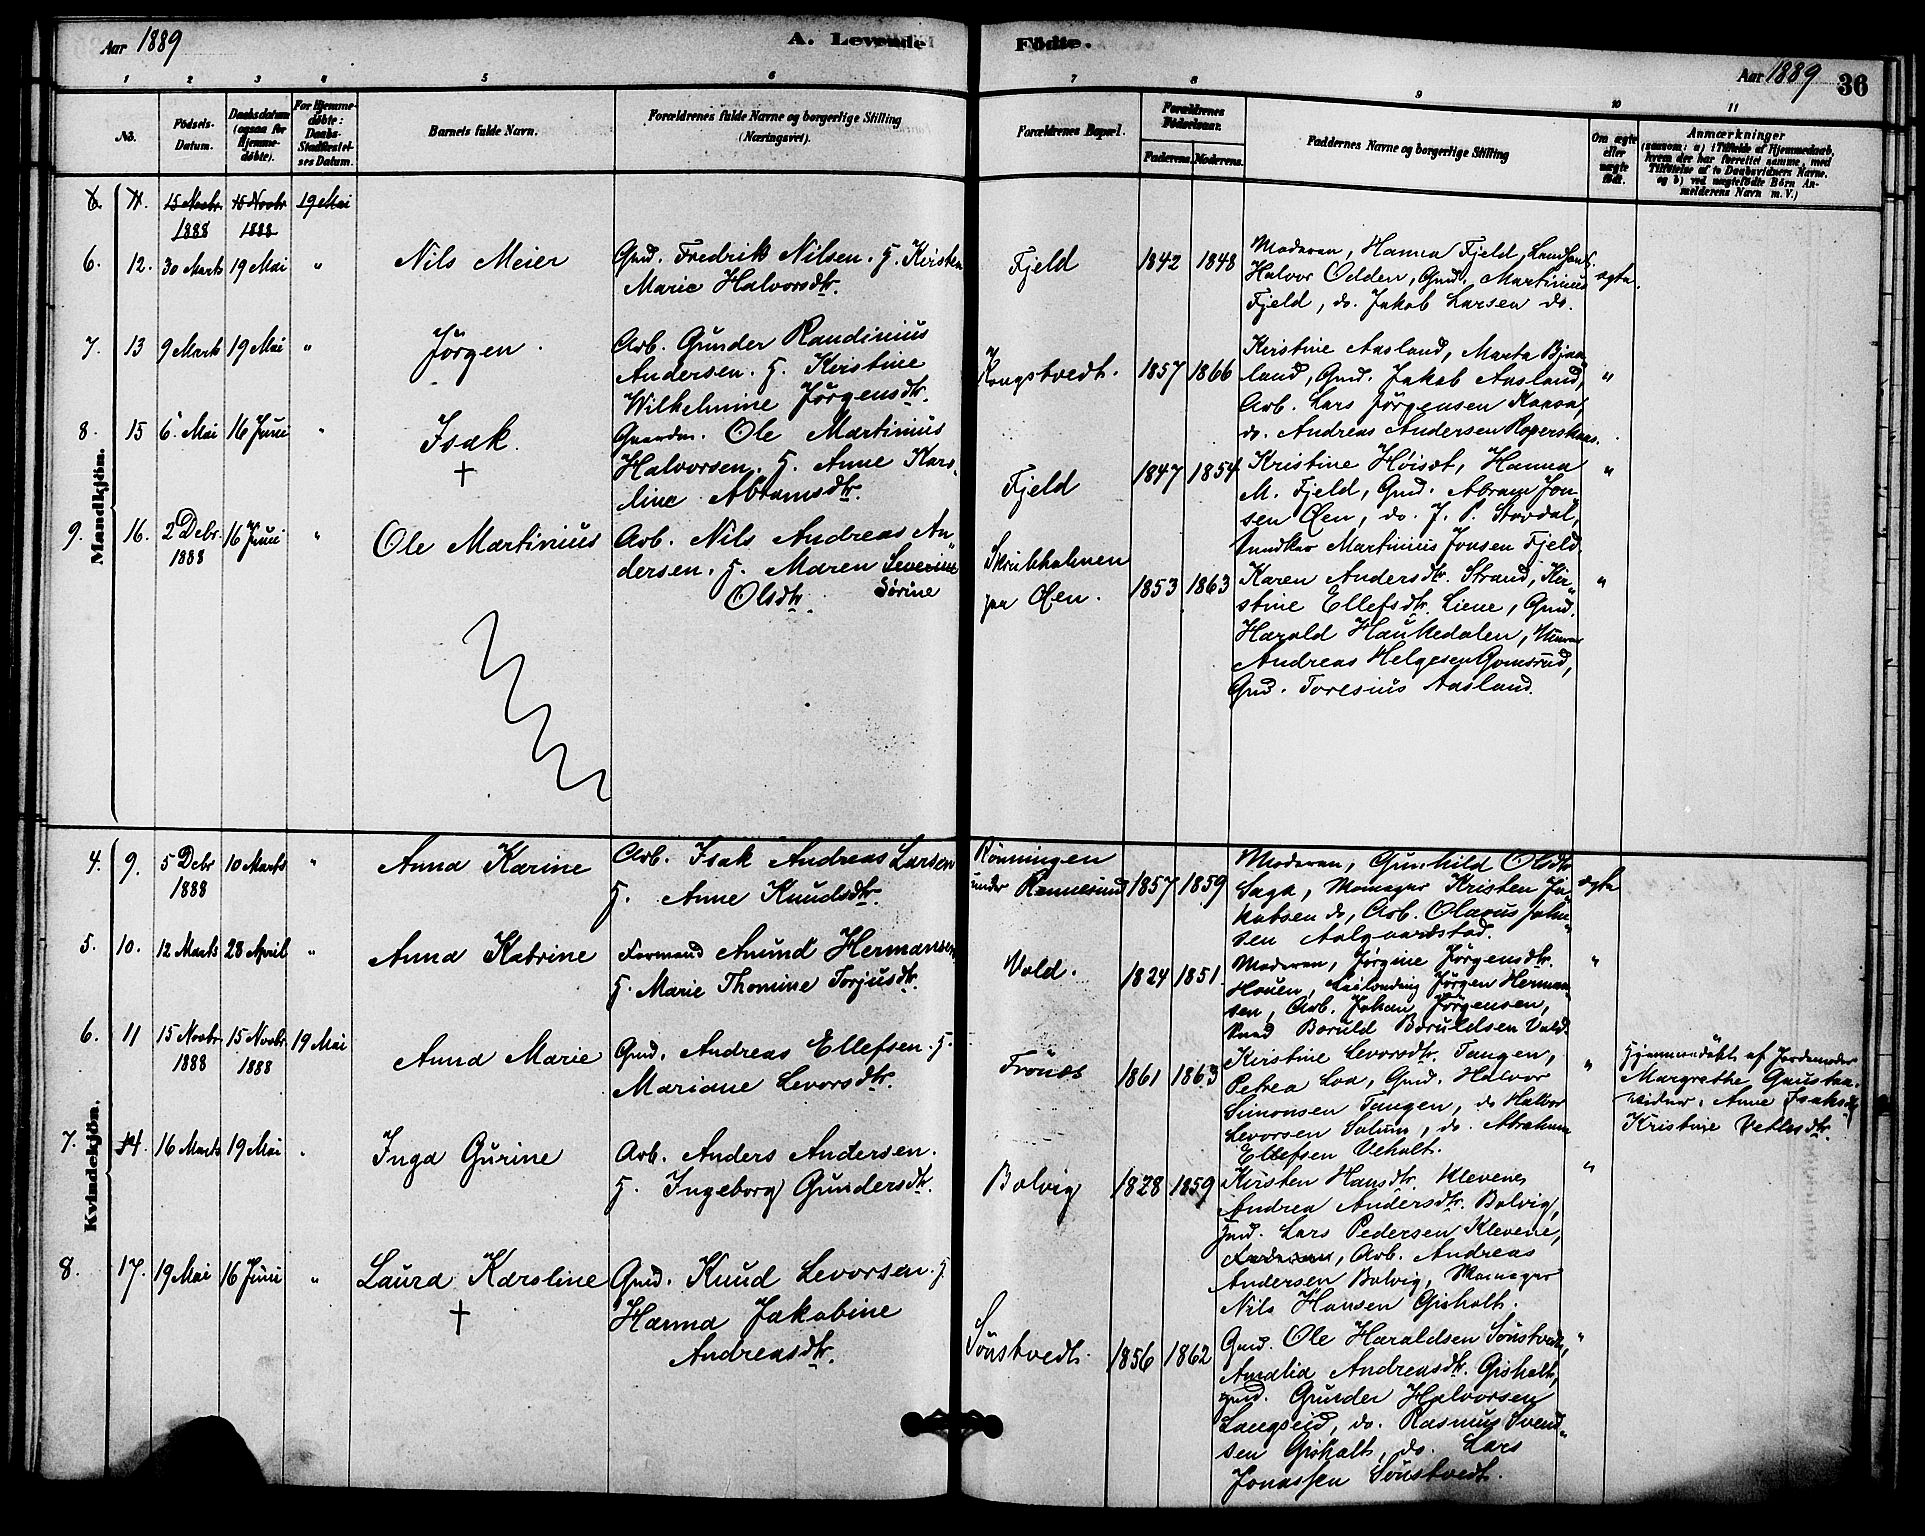 Aar 1889
A. Levende Födte.
Aar 1889 36
1 2 3 4 5 6 7 8 9 10 11
No.
Födsels-Datum.
Daabsdatum (ogsaa for Hjemme-døbte).
For Hjemme-døbte: Daabs-Stadfæstel-ses Datum.
Barnets fulde Navn.
Forældrenes fulde Navne og borgerlige Stilling (Næringsvei).
Forældrenes Bopæl.
Forældrenes Födselsaar.
Faderens. Moderens.
Faddernes Navne og borgerlige Stilling
Om ægte eller uægte født.
Anmærkninger
(saasom: a) i Tilfælde af Hjemmedaab, hvem der har forrettet samme, med Tilföielse af to Daabsvidners Navne, og b) ved uægtefödte Börn An-melderens Navn m. V.)
Mandkjön.
6. 11. 15 Novbr 1888 15 Novbr 1888 19 Mai
6. 12. 30 Marts 19 Mai "
Nils Meier
Gmd. Fredrik Nilsen. H. Kirsten
Marie Halvorsdtr.
Fjeld 1842 1848
Moderen, Hanna Fjeld, Landh.
Halvor Odden, Gmd. Martinius
Fjeld, do. Jakob Larsen do.
ægte.
7. 13 9 Marts 19 Mai "
Jörgen.
Arb. Gunder Randinius
Andersen. H. Kirstine
Wilhelmine Jörgensdtr.
Kongstvedt. 1857 1866
Kirstine Aasland, Marta Bjaa
land, Gmd. Jakob Aasland,
Arb. Lars Jörgensen
do. Andreas Andersen
"
8. 15 6 Mai 16 Juni "
Isak.
†
Gaardm. Ole Martinius
Halvorsen. H. Anne Kars-
line Abramsdtr.
Fjeld 1847 1854
Kristine Höisæt, Hanna
M. Fjeld, Gmd. Abram Jon
sen Øen, do. J. P. Stovdal,
Martinius Jonsen Fjeld.
"
9. 16. 2 Debr 1888 16 Juni "
Ole Martinius
Arb. Nils Andreas An
dersen. H. Maren Severine
Olsdtr. Sörine
Skrubholmen
paa Øen. 1853 1863
Karen Andersdtr. Strand, Kir
stine Ellefsdtr. Liene, Gmd.
Harald Haukedalen,
Andreas Helgesen Gomsrud,
Gmd. Toresius Aasland.
"
Kvindekjön.
4. 9. 5 Debr 1888 10 Marts "
Anna Karine
Arb. Isak Andreas Larsen
H. Anne Knudsdtr.
Rönningen
under Rennesund 1857 1859
Moderen, Gunhild Olsdtr
Saga, Momager Kristen Ja
kobsen do, Arb. Olavus John
sen Aalgaardstad.
ægte
5. 10. 12 Marts 28 April "
Anna Katrine
Formand Amund Hermansen
H. Marie Thomine Torjusdtr.
Vold. 1824 1851.
Moderen, Jörgine Jörgensdtr.
Houen, Jörgen Herman
sen, Arb. Johan Jörgensen,
Boruld Boruldsen Vold.
"
6. 11 15 Novbr 1888 15 Novbr 1888 19 Mai
Anna Marie
Gmd. Andreas Ellefsen. H.
Mariane Levorsdtr.
Frönes 1861 1863
Kirstine Levorsdtr. Tangen,
Petrea Loa, Gmd. Halvor
Simonsen Tangen, do Halvor
Levorsen Solum, do. Abraham
Ellefsen Veholt.
"
Hjemmedöbt af Jordemoder
Margrethe Gaustan.
Vidner: Anne Isaksdtr
Kristine Vetlesdtr.
7. 14. 16 Marts 19 Mai "
Inga Gurine
Arb. Anders Andersen.
H. Ingeborg Gundersdtr.
Bolvig 1828 1859
Kirsten Hansdtr. Klevene,
Andrea Andersdtr. Bolvig,
Gmd. Lars Pedersen Klevene,
Faderen, Arb. Andreas
Andersen Bolvig, Momager
Nils Hansen Gisholt.
"
8. 17. 19 Mai 16 Juni "
Laura Karoline
†
Gmd. Knud Levorsen. H.
Hanna Jakobine
Andreasdtr.
Sönstvedt. 1856 1862
Gmd. Ole Haraldsen Sönstvedt,
Amalia Andreasdtr. Gisholt,
Gmd. Gunder Halvorsen
Langseid, do. Rasmus Svend
sen Gisholt, do. Lars
Jonassen Sönstvedt.
"